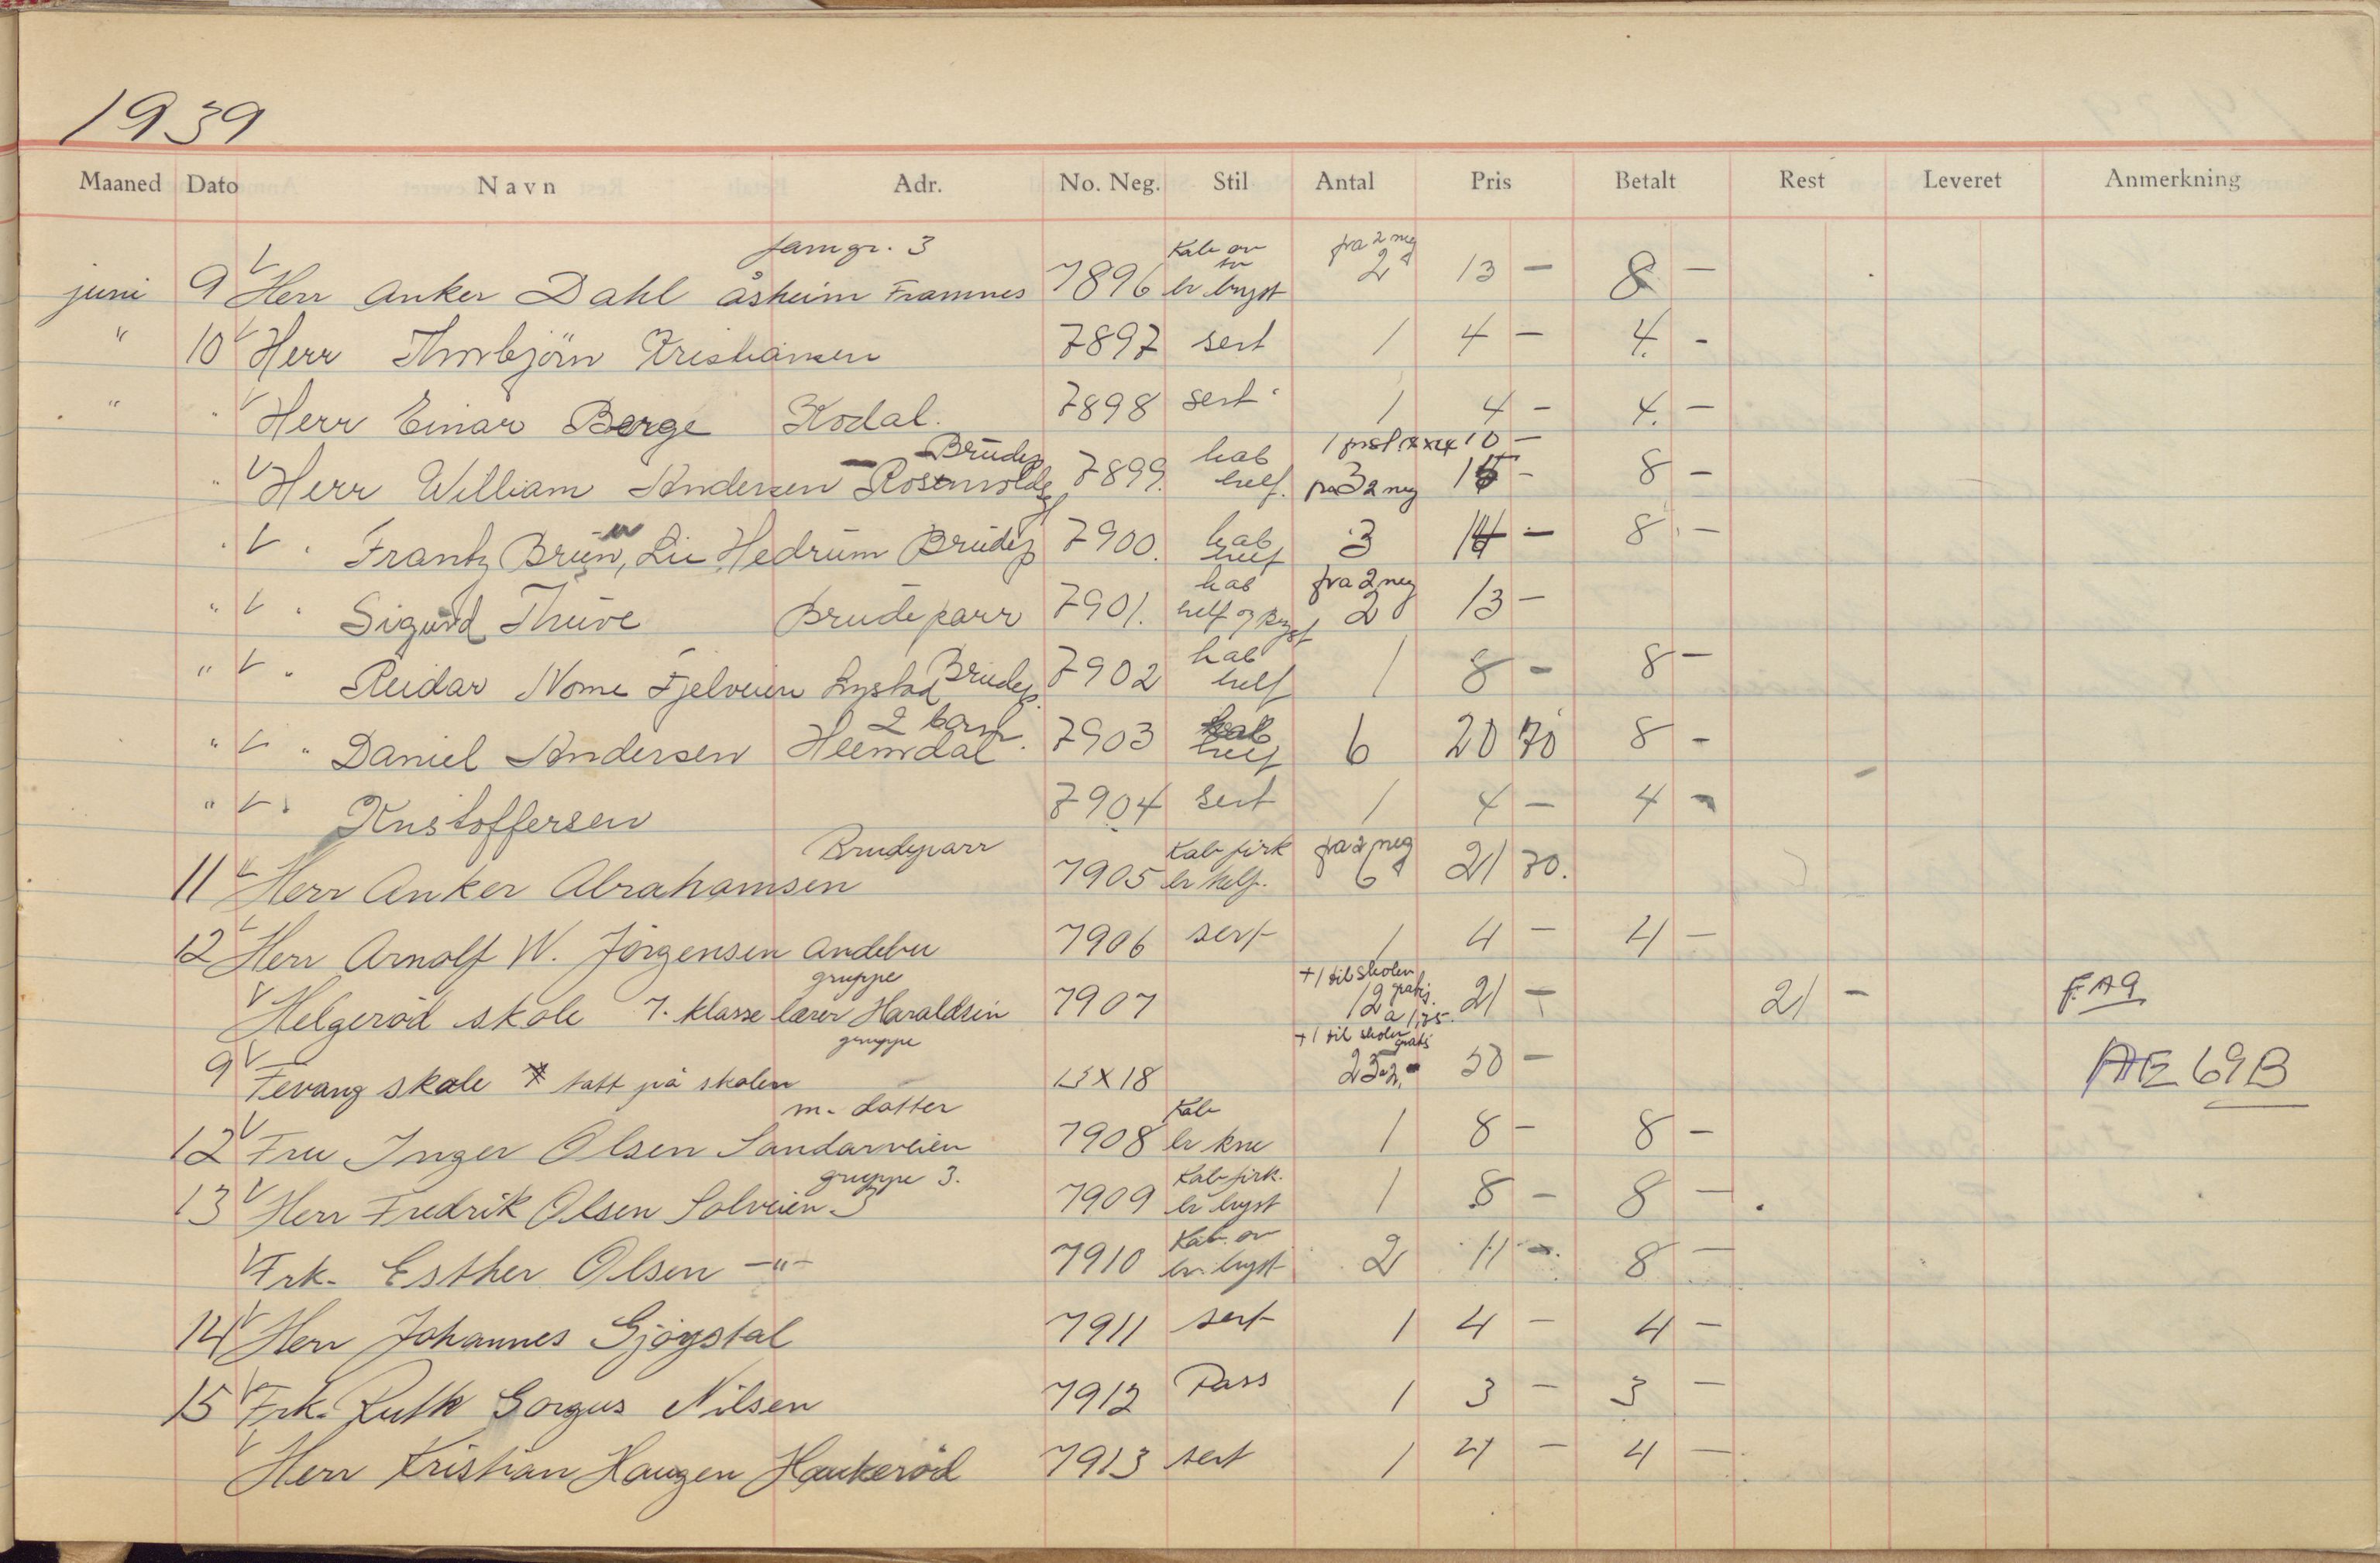 1939
Maaned Dato Navn Adr. No. Neg. Stil Antal Pris Betalt Rest Leveret Anmerkning
famgr. 3 Kab fra 2 neg
juni 9 V Herr Anker Dahl åsheim Framnes 7896 br bryst 2 13 — 8 —
" 10 V Herr Thorbjörn Kristiansen 7897 sert 1 4 — 4. -
" " V Herr Einar Berge Kodal. 7898 sert 1 4 - 4. —
Brudep kab 1 10 —
" V Herr William Andersen 7899. helf. 3 fra 2 neg 15 - 8 -
" V " Frantz Bruun, Lie Hedrum Brudep 7900. kab helf 3 14 — 8 —
kab fra 2 neg
" V " Sigurd Thuve Brudeparr 7901. helf og bryst 2 13 —
" V " Reidar Nome Fjelveien Brudep. 7902 kab helf 1 8 - 8 —
2 barn
" V " Daniel Andersen Heimdal 7903 kab helf 6 20 70 8 -
" V " Kristoffersen 7904 sert 1 4 — 4 -
Brudeparr Kab fra 2 neg
11 V Herr Anker Abrahamsen 7905 br helf. 6 21 70.
12 V Herr Arnolf W. Jörgensen Andebu 7906 sert 1 4 — 4 —
gruppe +1 til skolen gratis.
V Helgeröd skole 7. klasse lærer Haraldsen 7907 12 a 1,75. 21 — 21 - F.A9
gruppe +1 til skolen gratis
9 V Fevang skole tatt på skolen 13 X 18 25 50 — AE 69B
m. datter Kab
12 V Fru Inger Olsen Sandarveien 7908 br kne 1 8 - 8 —
gruppe 3. Kab
13 V Herr Fredrik Olsen Solveien 3 7909 br bryst 1 8 - 8 —
Kab.
V Frk. Esther Olsen —"— 7910 br. bryst 2 11 - 8 —
14 V Herr Johannes Gjögstal 7911 sert 1 4 — 4 —
15 V Frk. Ruth Gorgus Nilsen 7912 Pass 1 3 — 3 —
V Herr Kristian Haugen Haukeröd 7913 sert 1 4 — 4 —